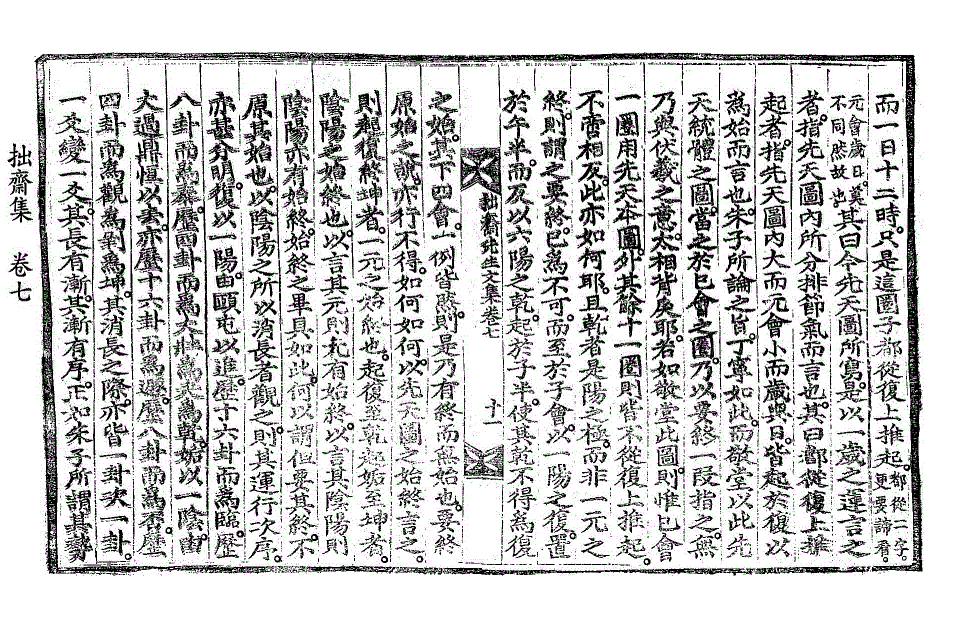 而一日十二時只是這圈子都從復上推起都從二字更要諦看
元會歲日莫不同然故出其曰今先天圖所寫是以一歲之運言之
者指先天圖內所分排節氣而言也其曰都從復上推
起者指先天圖內大而元會小而歲與日皆起於復以
爲始而言也朱子所論之旨丁寧如此而敬堂以此先
天統體之圖當之於巳會之圈乃以要終一段指之無
乃與伏羲之意太相背戾耶若如敬堂此圖則惟巳會
一圈用先天本圖外其餘十一圈則皆不從復上推起
不啻相反此亦如何耶且乾者是陽之極而非一元之
終則謂之要終已爲不可而至於子會以一陽之復置
於午半而反以六陽之乾起於子半使其乾不得爲復
拙齋先生文集卷七 十一
之始其下四會一例皆然則是乃有終而無始也要終
原始之說亦行不得如何如何以先天圖之始終言之
則起復終坤者一元之始終也起復至乾起姤至坤者
陰陽之始終也以言其元則元有始終以言其陰陽則
陰陽亦有始終始終之畢具如此何以謂但要其終不
原其始也以陰陽之所以消長者觀之則其運行次序
亦甚分明復以一陽由頤屯以進歷十六卦而爲臨歷
八卦而爲泰歷四卦而爲大壯爲夬爲乾姤以一陰由
大過鼎恒以去亦歷十六卦而爲遯歷八卦而爲否歷
四卦而爲觀爲剝爲坤其消長之際亦皆一卦次一卦
一爻變一爻其長有漸其漸有序正如朱子所謂其勢
拙齋集 卷七